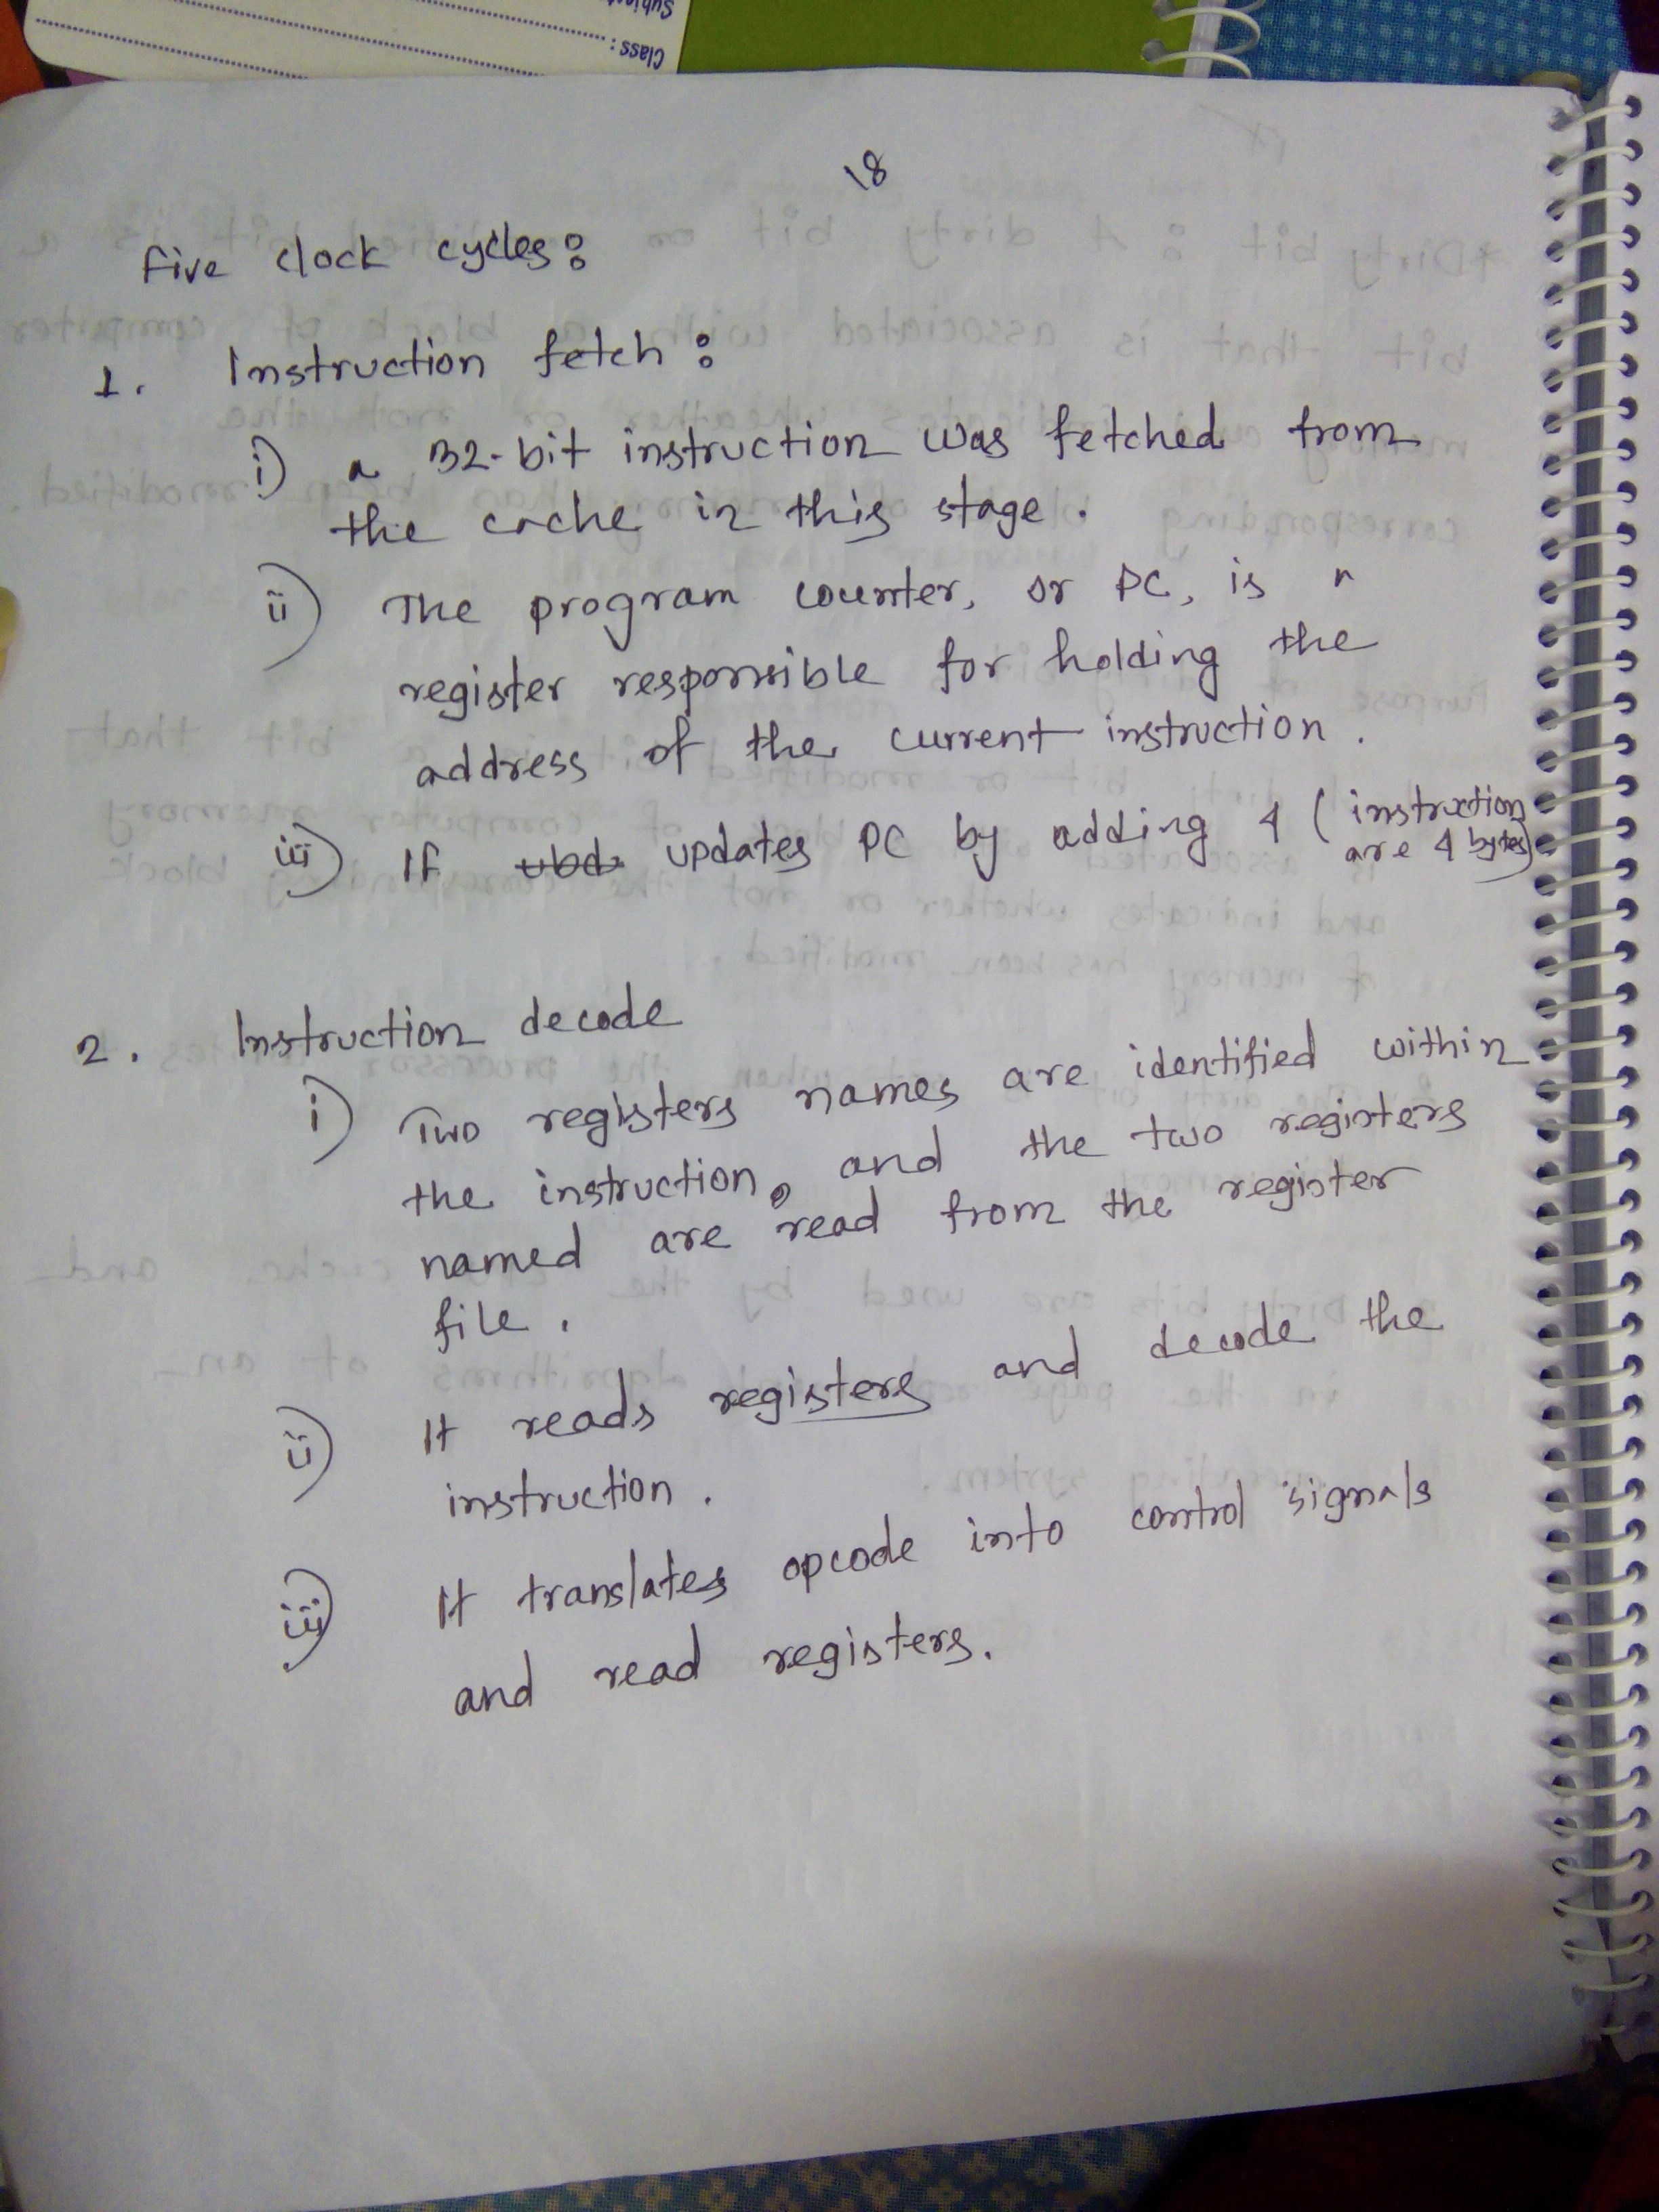 Subject
Class:
18
Five clock cycles:
1. Instruction fetch:
i) a 32-bit instruction was fetched from
the cache in this stage.
ii) The program counter, or PC, is a
register responsible for holding the
address of the current instruction.
iii) If updates PC by adding 4 (instruction
are 4 bytes)
2. Instruction decode
i) Two registers names are identified within
the instruction, and the two registers
named are read from the register
file.
ii) It reads registers and decode the
instruction.
iii) It translates opcode into control signals
and read registers.